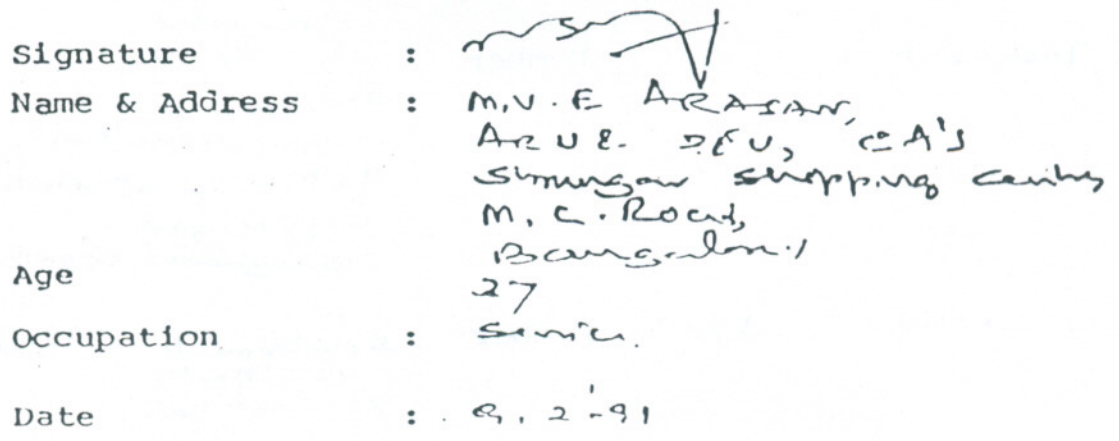 Signature :
Name & Address : M.V.E ARASAN,
ARU & DEV, CA'S
shopping
M. C. Road,
Bangalore.1
Age 27
Occupation : Service.
Date : 9.2-91